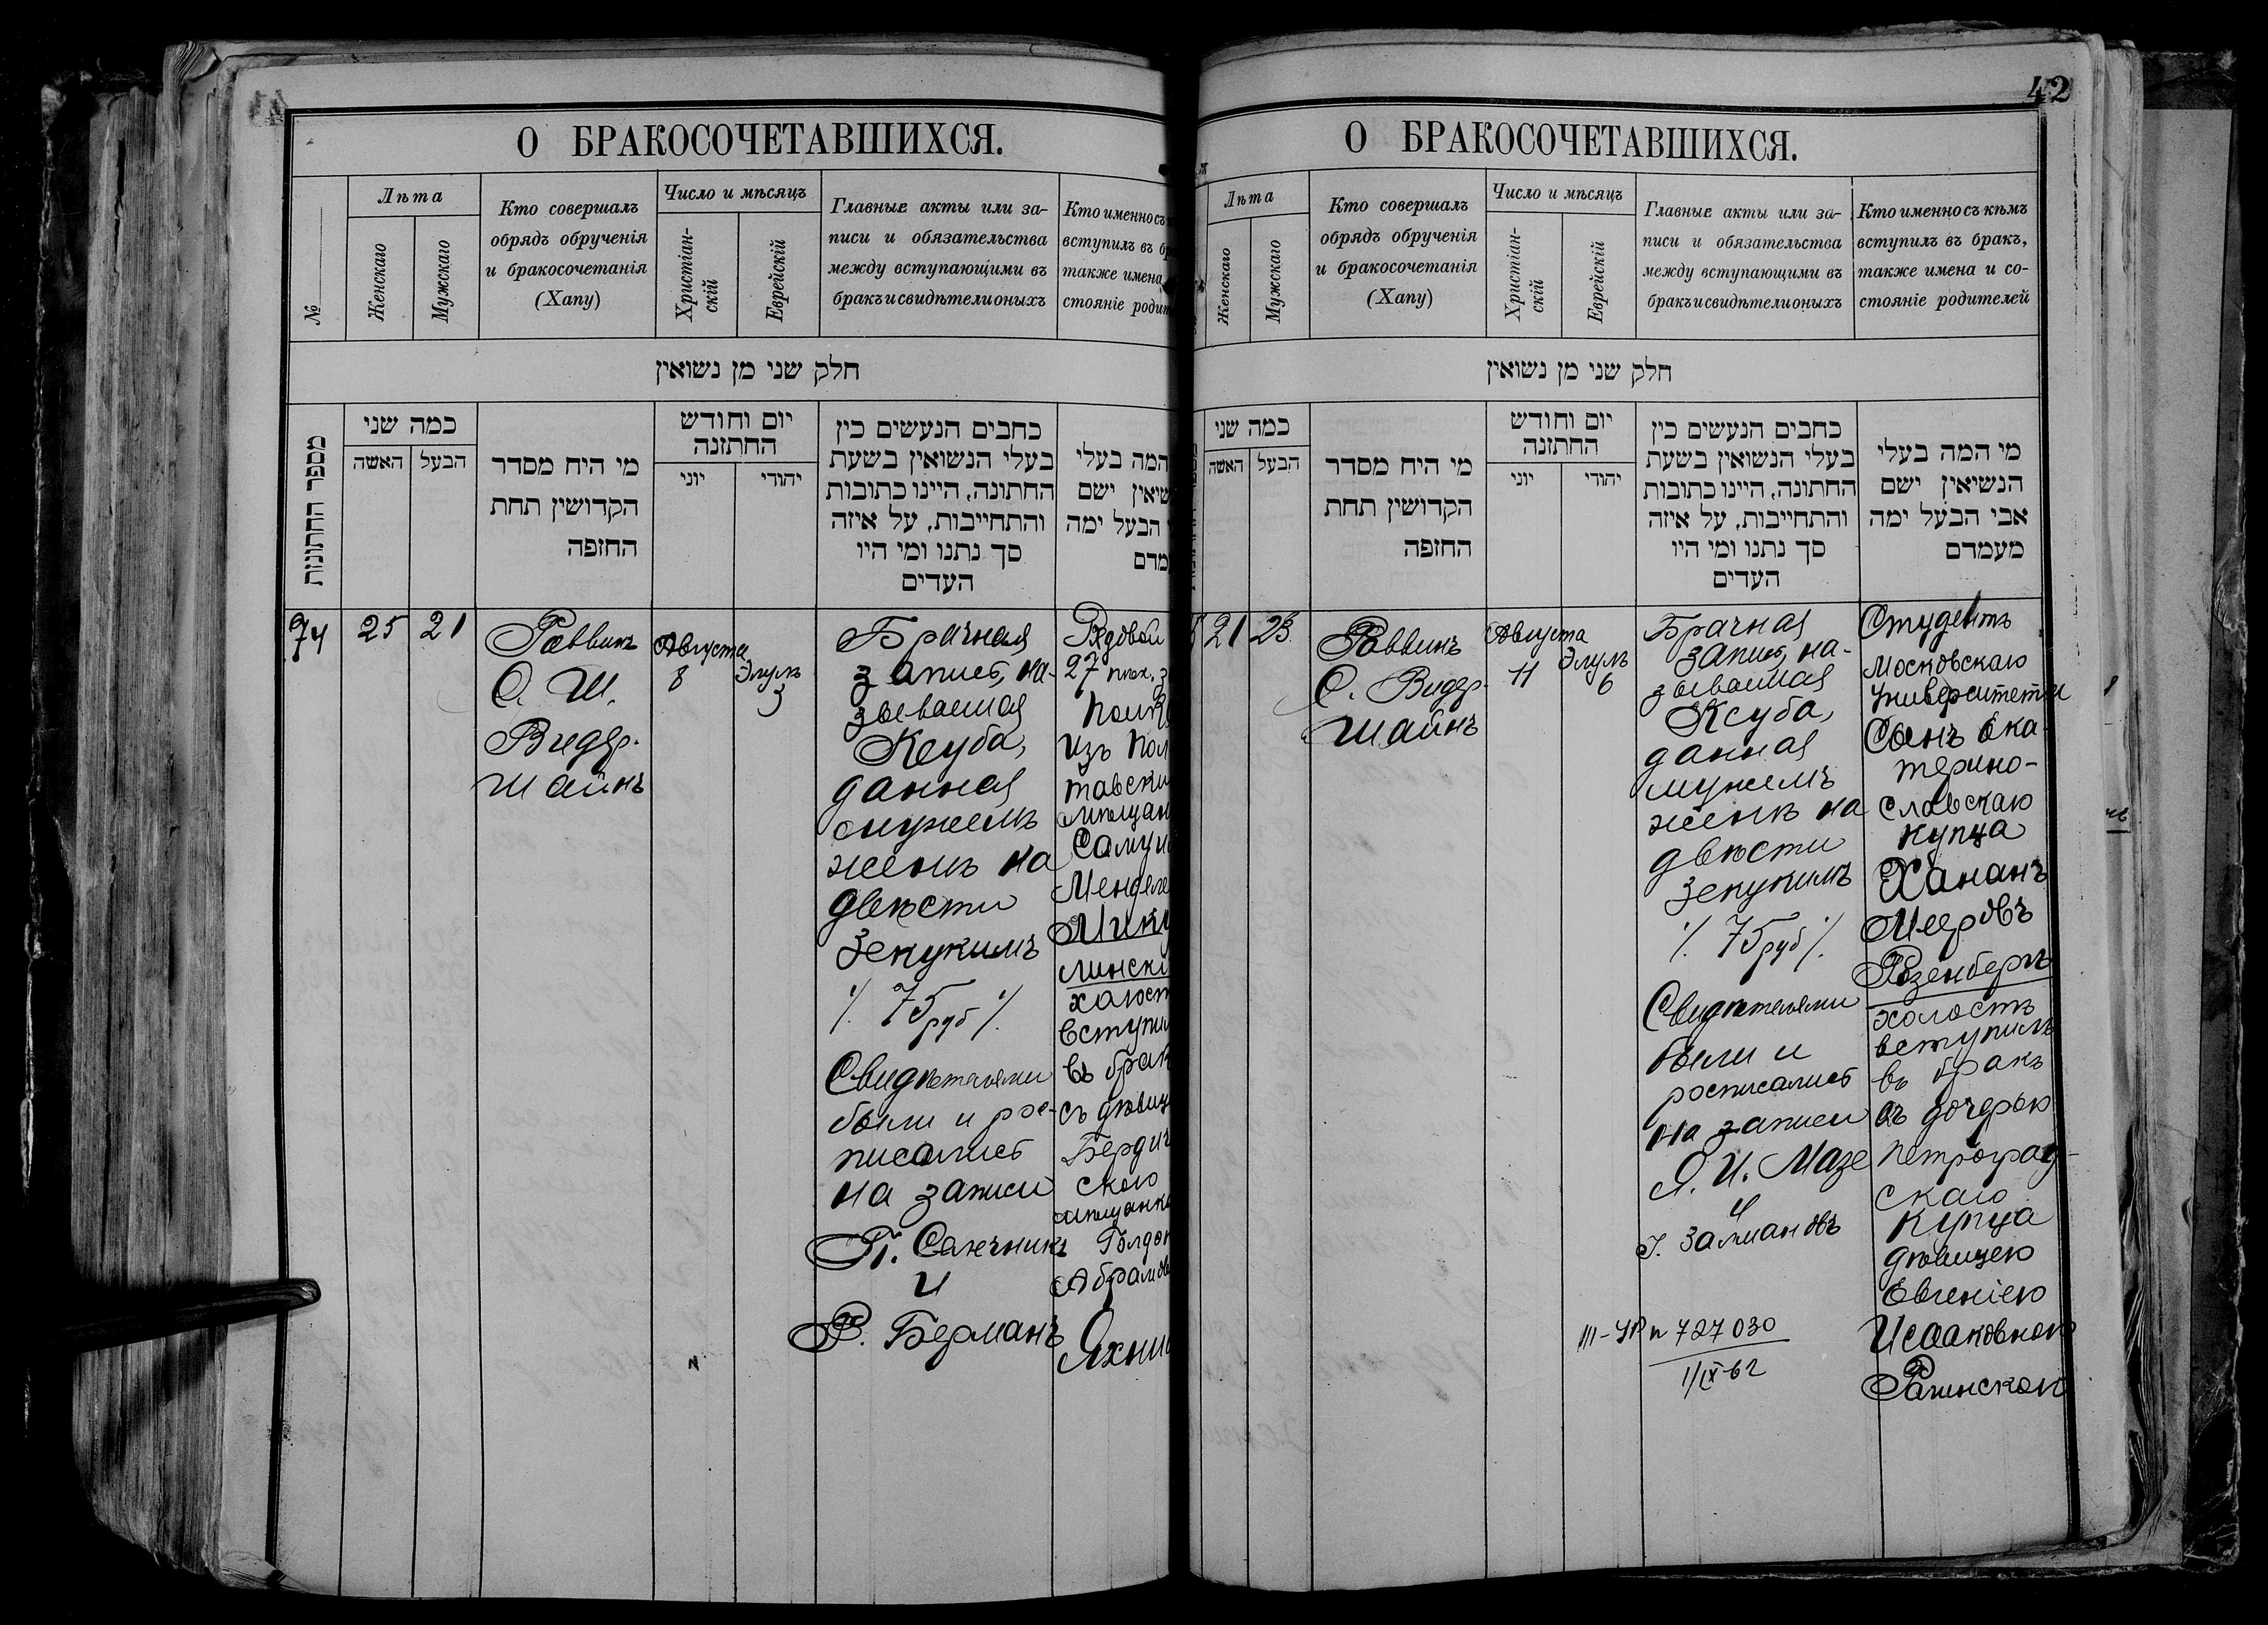 О БРАКОСОЧЕТАВШИХСЯ.
№
Лѣта
Женскаго
Мужскаго
Кто совершалъ
обрядъ обрученія
и бракосочетанія
(Хапу)
Число и мѣсяцъ
Христіан-
скій
Еврейскій
Главные акты или за-
писи и обязательства
между вступающими въ
бракъ и свидѣтели оныхъ
Кто именно съ
вступилъ въ
также имена
стояніе
חלק שני מן נשואין
מספר החתונות
כמה שני
האשה
הבעל
מי היח מסדר
הקדושין תחת
החזפה
יום וחודש
החתזנה
יוני
יהודי
כחבים הנעשים כין
בעלי הנשואין בשעת
החתונה, היינו כתובות
והתחייבות, על איזה
סך נתנו ומי היו
העדים
המה בעלי
ישם
הבעל ימה
74
25
21
Раввинъ
О. Ш.
Видер-
шайнъ
Августа
8
Элулъ
3
Брачная
запись, на-
зываемая
Ксуба,
данная
мужемъ
женѣ на
двѣсти
Зекукимъ
/. 75 руб /.
Свидѣтелями
были и рос-
писались
на записи
П. Сапожникъ
и
Р. Берманъ
Рядовой
27 пѣх. з
Полк
изъ Пол
тавски
мѣщан
Самуи
Менделе
Мику
лински
холост
вступи
въ брак
съ дѣвиц
Бердич
ского
мѣщанк
Голдо
Абрамов
Яхни
42
О БРАКОСОЧЕТАВШИХСЯ.
Лѣта
Женскаго
Мужскаго
Кто совершалъ
обрядъ обрученія
и бракосочетанія
(Хапу)
Число и мѣсяцъ
Христіан-
скій
Еврейскій
Главные акты или за-
писи и обязательства
между вступающими въ
бракъ и свидѣтели оныхъ
Кто именно съ кѣмъ
вступилъ въ бракъ,
также имена и со-
стояніе родителей
חלק שני מן נשואין
כמה שני
האשה
הבעל
מי היח מסדר
הקדושין תחת
החזפה
יום וחודש
החתזנה
יוני
יהודי
כחבים הנעשים כין
בעלי הנשואין בשעת
החתונה, היינו כתובות
והתחייבות, על איזה
סך נתנו ומי היו
העדים
מי המה בעלי
הנשיאין ישם
אבי הבעל ימה
מעמדם
21
23
Раввинъ
О. Видер-
шайнъ
Августа
11
Элулъ
6
Брачная
запись, на-
зываемая
Ксуба,
данная
мужемъ
женѣ на
двѣсти
Зекукимъ
/. 75 руб /.
Свидѣтелями
были и
росписались
на записи
Я. И. Мазе
и
Г. Залмановъ
Студентъ
Московскаго
Университета
Сынъ Ека-
терино-
славскаго
купца
Хананъ
Мееровъ
Розенбергъ
холостъ
вступилъ
въ бракъ
съ дочерью
Петроград-
скаго
Купца
дѣвицею
Евгеніею
Исааковною
727030
1/IX-62